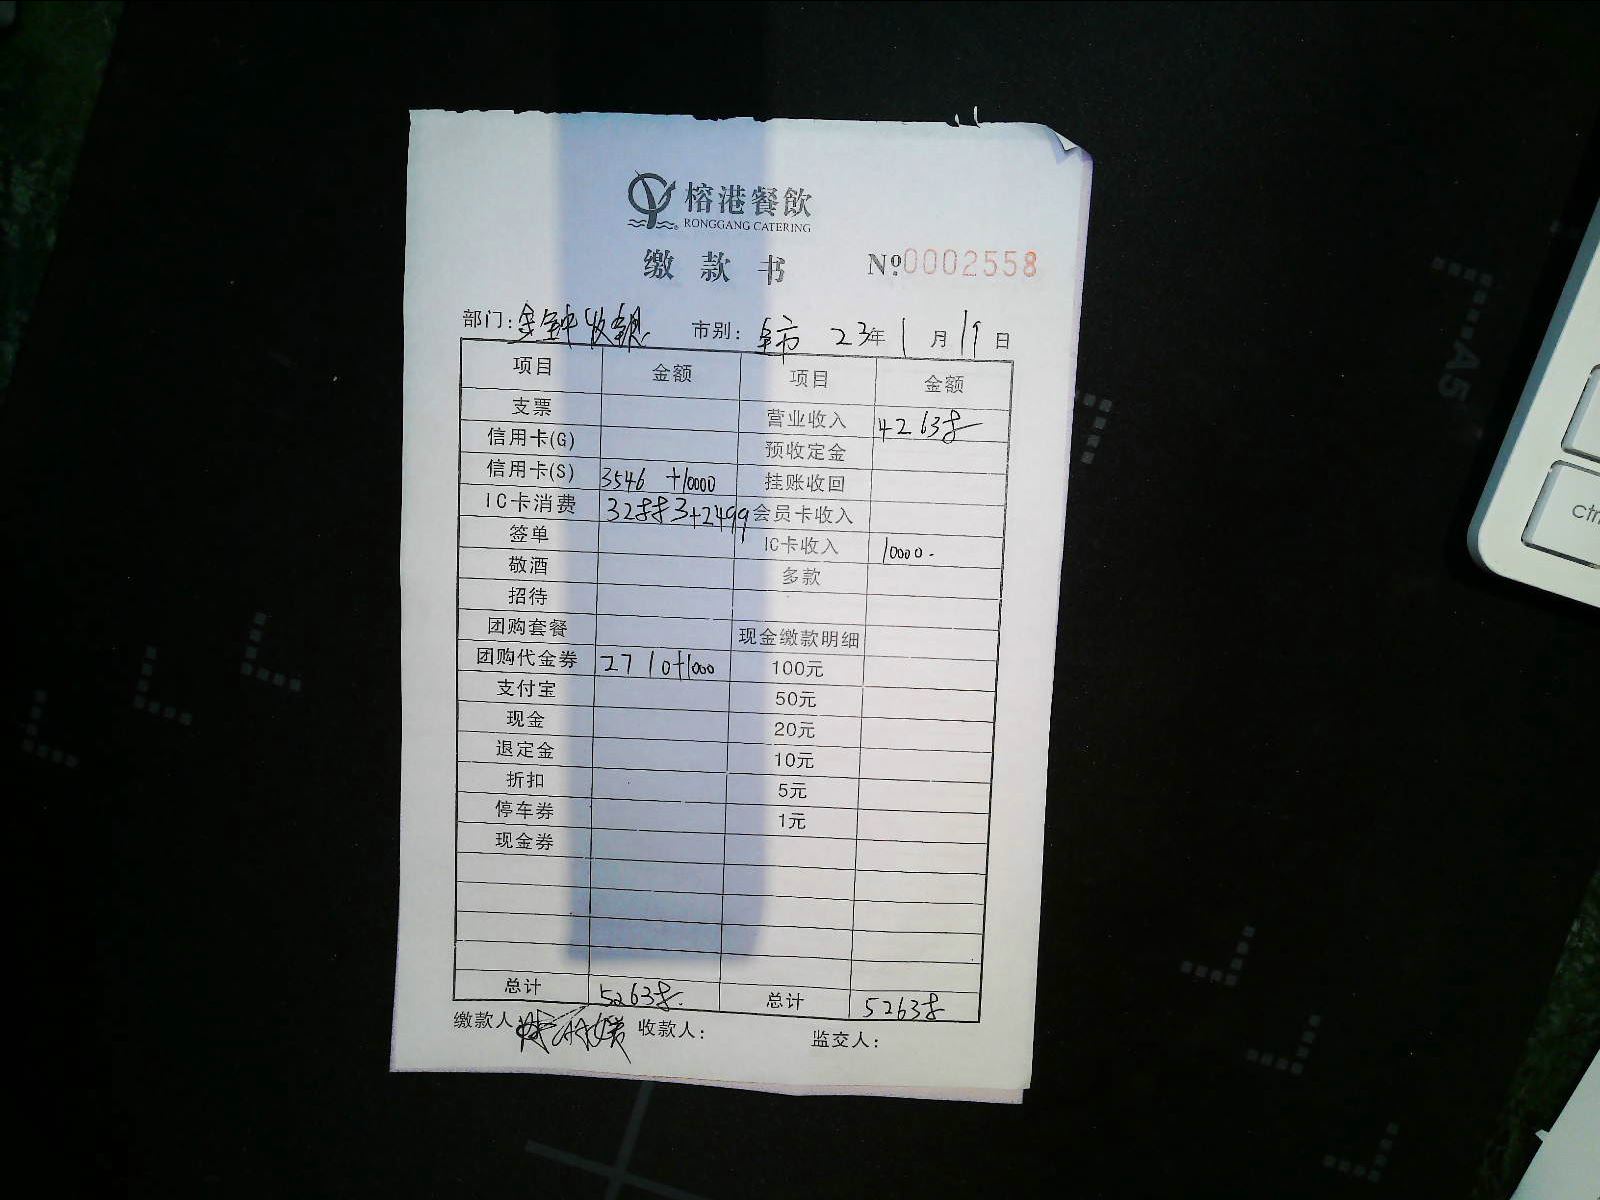 榕港餐飲
RONGGANG CATERING
缴款书 №0002558
部门: 金钟收银 市别: 全市 23年1月19日
项目 金额 项目 金额
支票 营业收入 42638
信用卡(G) 预收定金
信用卡(S) 3546 +10000 挂账收回
IC卡消费 32883+2499 会员卡收入
签单 IC卡收入 10000.
敬酒 多款
招待
团购套餐 现金缴款明细
团购代金券 2710+1000 100元
支付宝 50元
现金 20元
退定金 10元
折扣 5元
停车券 1元
现金券
总计 52638. 总计 52638
缴款人 收款人: 监交人:
A5
ctr